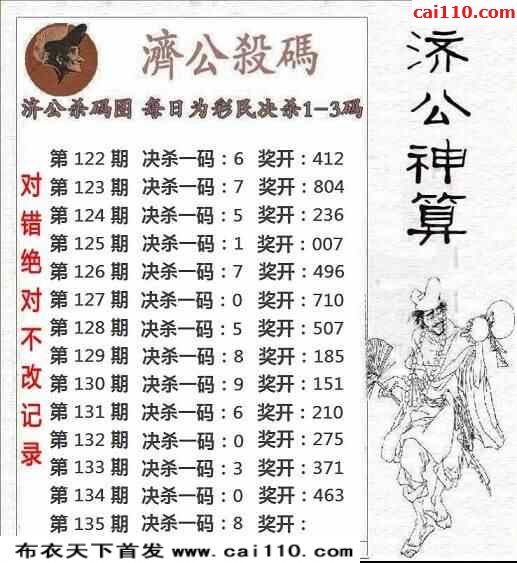 cai110.com
濟公殺碼
济公杀码图 每日为彩民决杀1-3码
济公神算
对错绝对不改记录
第 122 期 决杀一码：6 奖开：412
第 123 期 决杀一码：7 奖开：804
第 124 期 决杀一码：5 奖开：236
第 125 期 决杀一码：1 奖开：007
第 126 期 决杀一码：7 奖开：496
第 127 期 决杀一码：0 奖开：710
第 128 期 决杀一码：5 奖开：507
第 129 期 决杀一码：8 奖开：185
第 130 期 决杀一码：9 奖开：151
第 131 期 决杀一码：6 奖开：210
第 132 期 决杀一码：0 奖开：275
第 133 期 决杀一码：3 奖开：371
第 134 期 决杀一码：0 奖开：463
第 135 期 决杀一码：8 奖开：
布衣天下首发 www.cai110.com